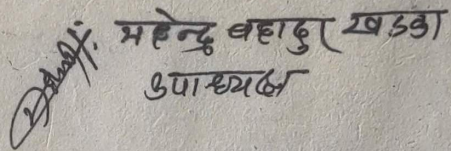 महेन्द्र बहादुर खडका
उपाध्यक्ष